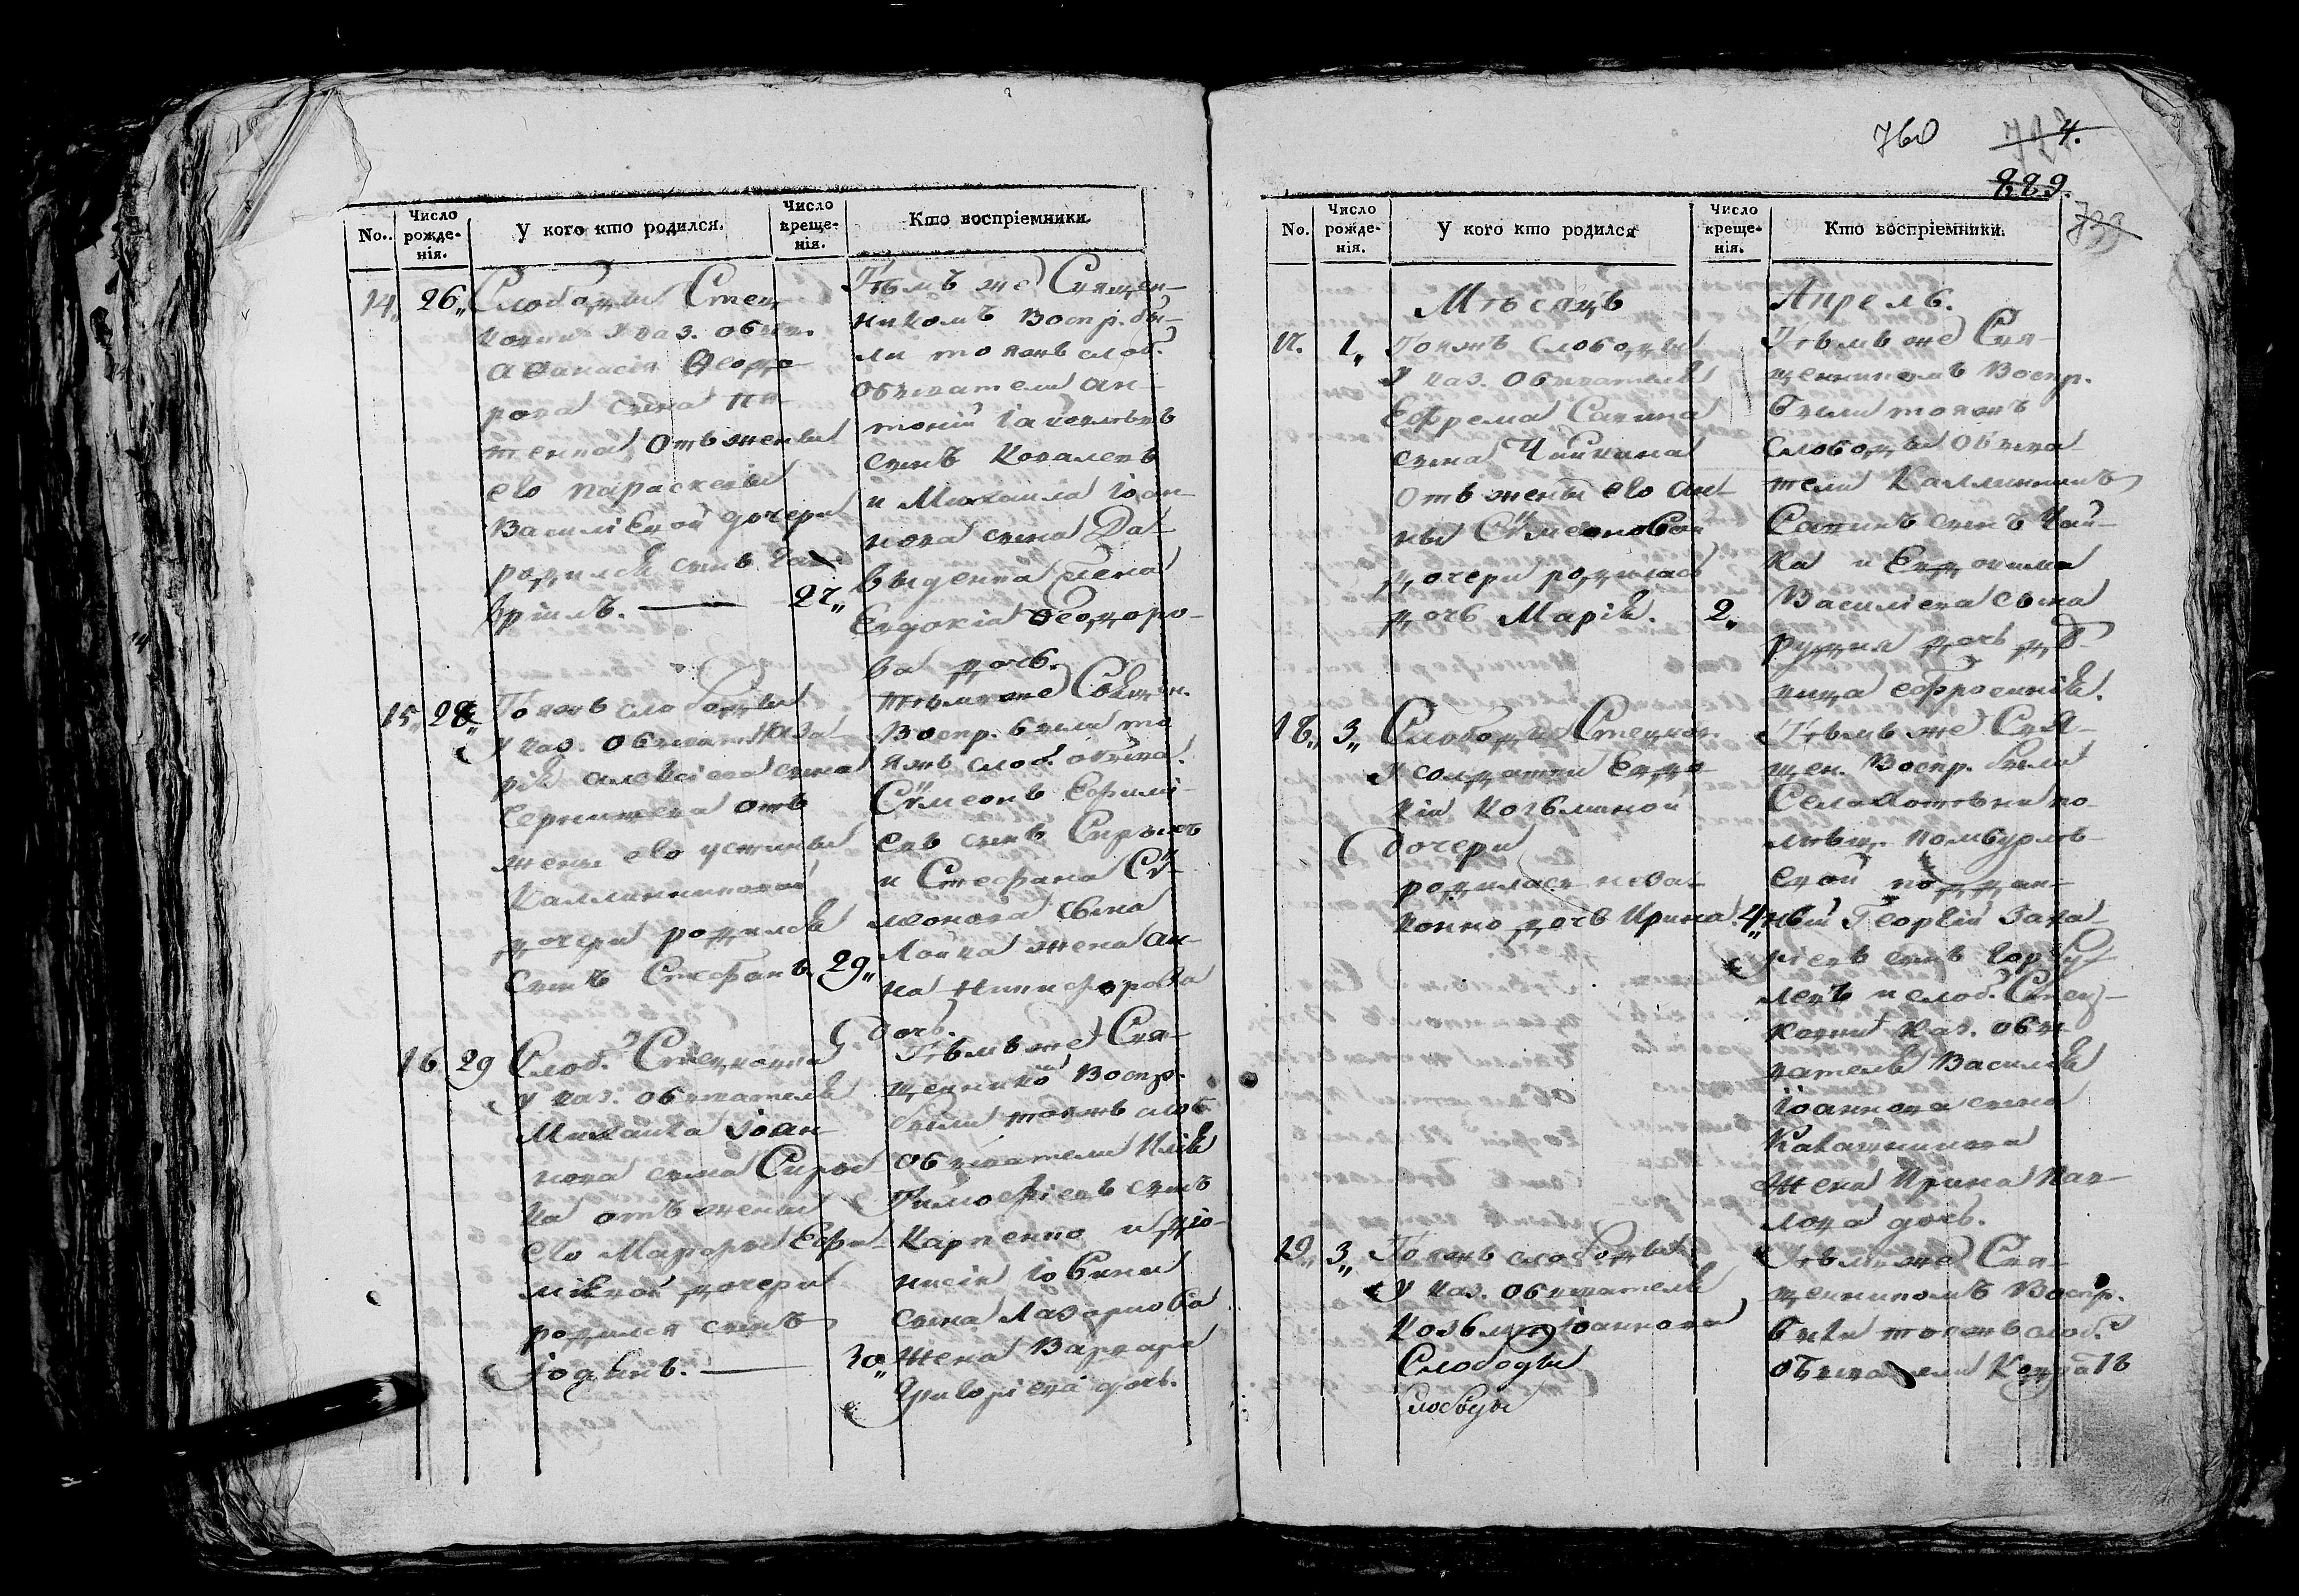 No.
Число рожде-нія.
У кого кто родился.
Число креще-нія.
Кто воспріемники.
14, 26,, Слободы Стец
ковки у каз. обыв.
Аѳанасія Ѳеодо
рова сына
отъ жены
его Параскевы
Василіевой дочери
родился сынъ Га
вріилъ. — 27,,
Тѣмъ же Священ-
никомъ Воспр. бы-
ли тоя жъ слоб.
обыватели Ан-
тоній Іаковлевъ
сынъ Коваленъ
и Михаила Іоан-
нова сына Да-
выденка жена
Евдокія Ѳеодоро-
ва дочь.
15,, 28,, Тояжъ слободы
у каз. обыват. Заха
рія Алексіева сына
Чернишева отъ
жены его Устины
Каллинниковой
дочери родился
сынъ Стефанъ. 29,,
Тѣмже Священ.
Воспр. были то
яжъ слоб. обыва.
Сѵмеонъ Ефимі-
евъ сынъ
и Стефана Сѵ-
меонова сына
Лойка жена Ан-
на Никифорова
дочь.
16 29 Слоб. Стецковки
у каз. обывателя
Михаила Іоан-
нова сына Сыро
ка отъ жены
его Марѳы Ефи-
міевой дочери
родился сынъ
30,,
Тѣмъ же Свя-
щенникô Воспр.
были тояжъ слоб.
обыватели Илія
Тимофіевъ сынъ
Карпенко и Діо-
нисія
сына Лазарнова
жена Варвара
Григоріева дочь.
760
4.
889.
739
No.
Число рожде-нія.
У кого кто родился
Число креще-нія.
Кто воспріемники.
Мѣсяцъ Апрель.
17. 1,, Тояжъ слободы
У каз. обывателя
Ефрема Савина
сына Чайкина
отъ жены его Ан-
ны Сѵмеоновой
дочери родилась
дочь Марія. 2,,
Тѣмъ же Свя-
щенникомъ Воспр.
были тояжъ
слободы обыва-
тели Каллинникъ
Савинъ сынъ Чай-
ка и Евдокима
Василіева сына
дочь дѣ-
вица Ефросинія.
18,, 3,, Слободы Стецков.
У солдатки Евдо-
кіи Козьминой
дочери
родилась неза-
конно дочь Ирина. 4,,
Тѣмъ же Свя-
щен. Воспр. были
Села по-
мѣщ. Комбурлѣ-
евой поддан-
ный Георгій Заха-
ріевъ сынъ Горбу
ленъ и слоб. Стец-
ковки каз. обы
вателя Василія
Іоаннова сына
жена Ирина Пав-
лова дочь.
19,, 3,, Тояжъ слободы
У каз. обывателя
Козьмы Іоаннова
Слободы
Слободы
Тѣмже Свя-
щенникомъ Воспр.
были тояжъ слоб.
обыватели